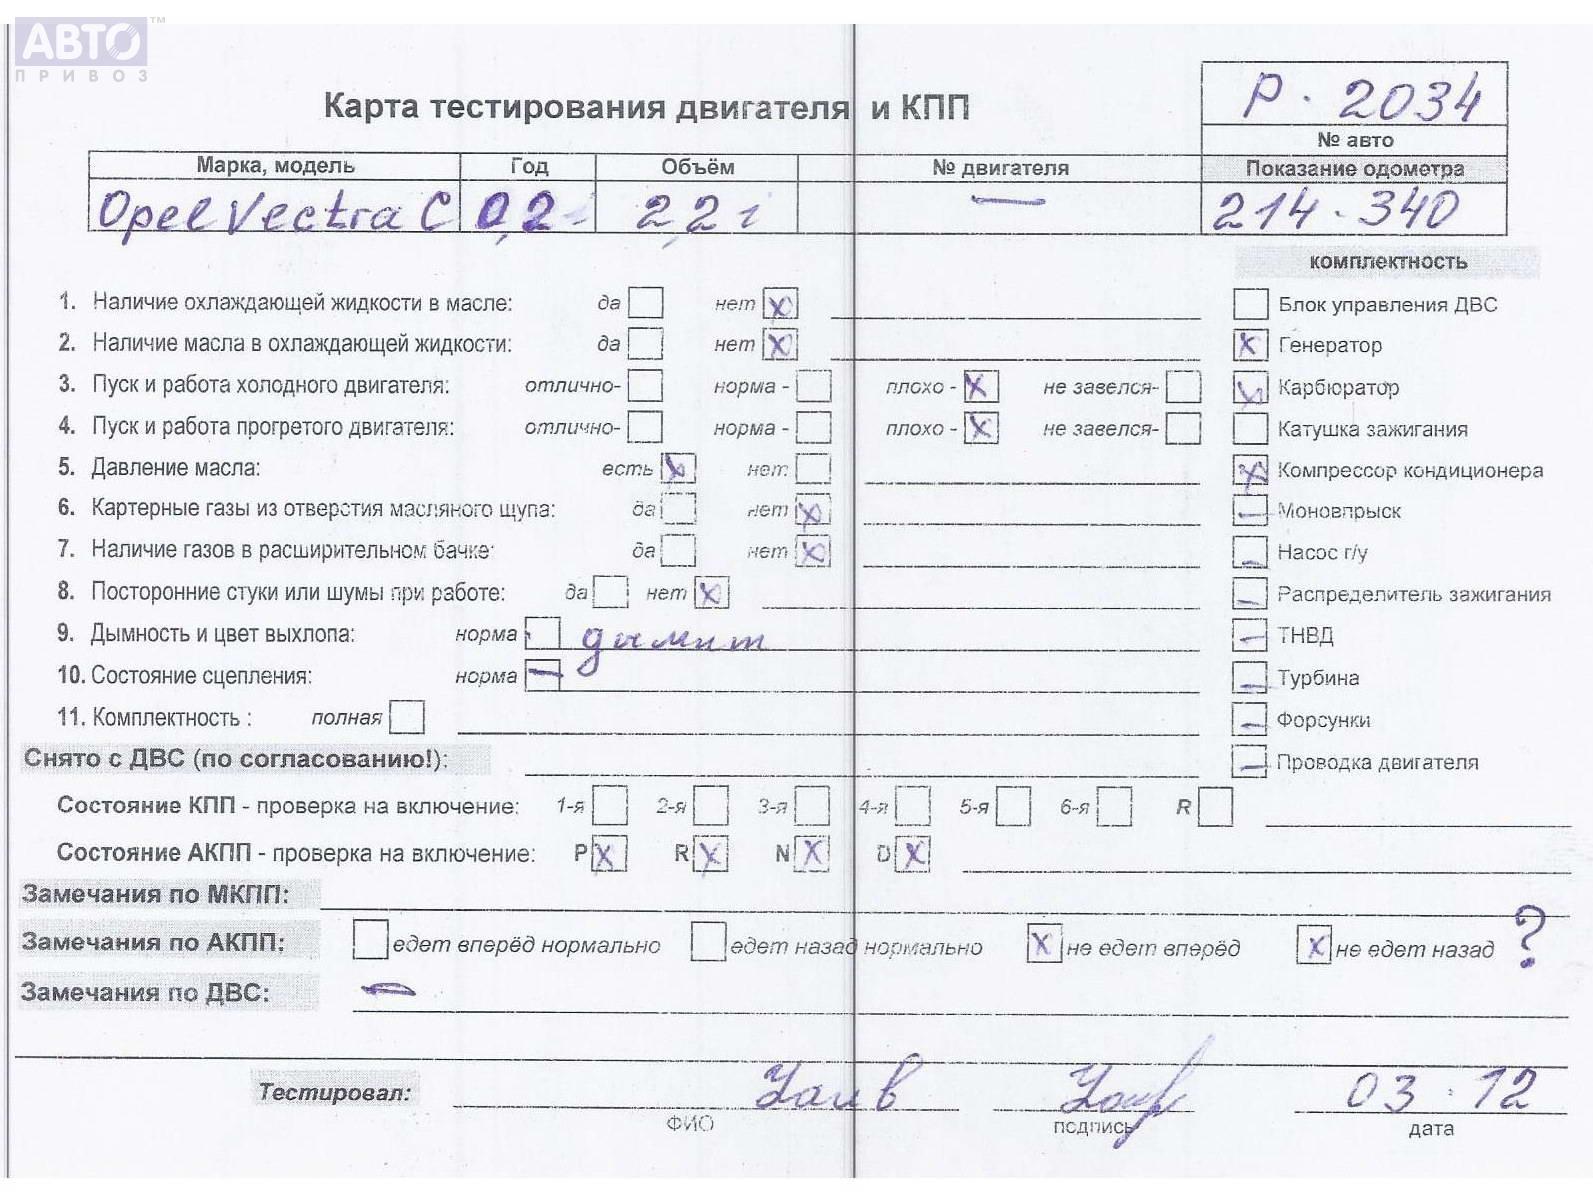 АВТО™
ПРИВОЗ
Карта тестирования двигателя и КПП
Р. 2034
№ авто
Марка, модель Год Объём № двигателя Показание одометра
Opel Vectra C 02 2,2 i — 214.340
комплектность
1. Наличие охлаждающей жидкости в масле: да нет x Блок управления ДВС
2. Наличие масла в охлаждающей жидкости: да нет x x Генератор
3. Пуск и работа холодного двигателя: отлично- норма - плохо - x не завелся- x Карбюратор
4. Пуск и работа прогретого двигателя: отлично- норма - плохо - x не завелся- Катушка зажигания
5. Давление масла: есть x нет x Компрессор кондиционера
6. Картерные газы из отверстия масляного щупа: да нет x — Моновпрыск
7. Наличие газов в расширительном бачке: да нет x — Насос г/у
8. Посторонние стуки или шумы при работе: да нет x — Распределитель зажигания
9. Дымность и цвет выхлопа: норма дымит — ТНВД
10. Состояние сцепления: норма — — Турбина
11. Комплектность : полная — Форсунки
Снято с ДВС (по согласованию!): — Проводка двигателя
Состояние КПП - проверка на включение: 1-я 2-я 3-я 4-я 5-я 6-я R
Состояние АКПП - проверка на включение: P x R x N x D x
Замечания по МКПП:
Замечания по АКПП: едет вперёд нормально едет назад нормально x не едет вперёд x не едет назад ?
Замечания по ДВС: —
Тестировал: 03.12
ФИО подпись дата